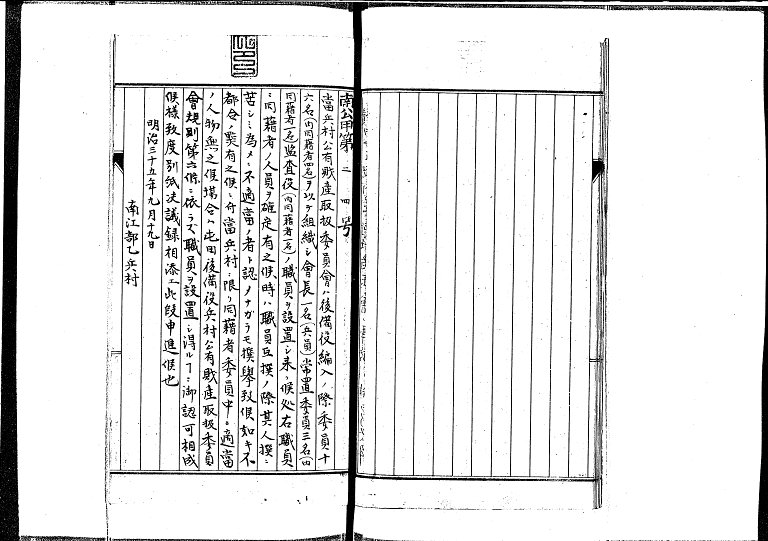 南公甲第二四号
當兵村公有財産取扱委員會ハ後備役編入ノ際委員十
六名(内同藉者四名)ヲ以テ組織シ會長一名(兵員)常置委員三名(内
同藉者一名)監査役(内同藉者一名)ノ職員ヲ設置シ来リ候処右職員
ニ同藉者ノ人員ヲ確定有之候時ハ職員互撰ノ際其人撰ニ
苦シミ為メニ不適當ノ者ト認メナガラモ撰擧致候如キ不
都合ノ契有之候ニ付當兵村ニ限リ同藉者委員中ニ適當
ノ人物無之候場合ハ屯田後備役兵村公有財産取扱委員
會規則第六條ニ依ラズ職員ヲ設置シ得ル丁ニ御認可相成
候様致度別紙决議録相添エ此段申進候也
明治三十五年九月十九日
南江部乙兵村